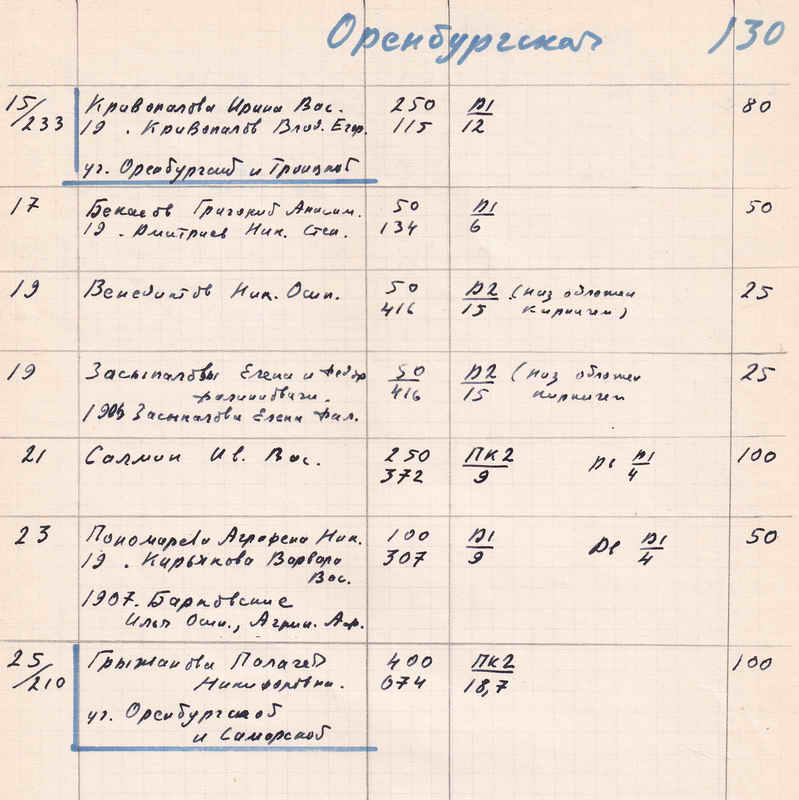 Оренбургской 130
15/233 Кривопалова Ирина Вас. 250 Д1 80
19 . Кривопалов Влад. Егор. 115 12
уг. Оренбургской и Троицкой
17 Бекасов Григорий Анисим. 50 Д1 50
19 . Дмитриев Ник. Степ. 134 6
19 Венедиктов Ник. Осип. 50 Д2 (низ обложен 25
416 15 кирпичем)
19 Засыпаловы Елена и Федор 50 Д2 (низ обложен 25
416 15 кирпичем
Засыпалова Елена Фал.
21 Салмин Ив. Вас. 250 ПК2 Д1 100
372 9 4
23 Пономарева Аграфена Ник. 100 Д1 Д1 50
19 . Кирьякова Варвара 307 9 4
Вас.
1907. Барковские
Илья Осип., Агрип. Аф.
25/210 Грыжанова Палагея 400 ПК2 100
Никифоровна. 074 18,7
уг. Оренбургской
и Самарской